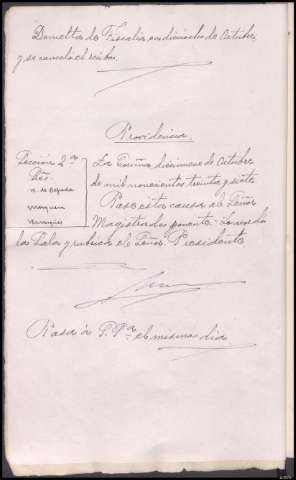 Devuelto de Fiscalía, en dieciocho de Octubre
y se canceló el recibo.
Providencia.
Sección 2ª
Srs.
La Coruña diecinueve de Octubre
de mil novecientos treinta y siete
Pase esta causa al Señor
Magistrado ponente
la Sala y rubrica el Señor Presidente
Pasa á P. Pª el mismo día